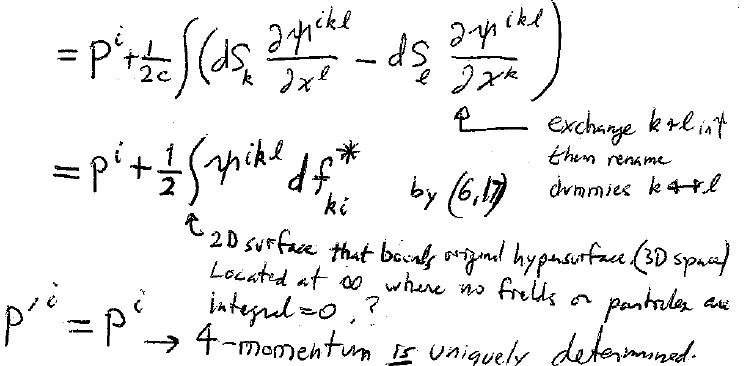 = P^i + 1/2c ∫ (dS_k ∂ψ^{ikl}/∂x^l − dS_l ∂ψ^{ikl}/∂x^k)
exchange k & l in ψ
then rename
dummies k ↔ l
= P^i + 1/2 ∫ ψ^{ikl} df*_{ki} by (6,17)
2D surface that bounds original hypersurface (3D space)
Located at ∞ where no fields or particles are
integral = 0, ?
P'^i = P^i
→ 4-momentum is uniquely determined.